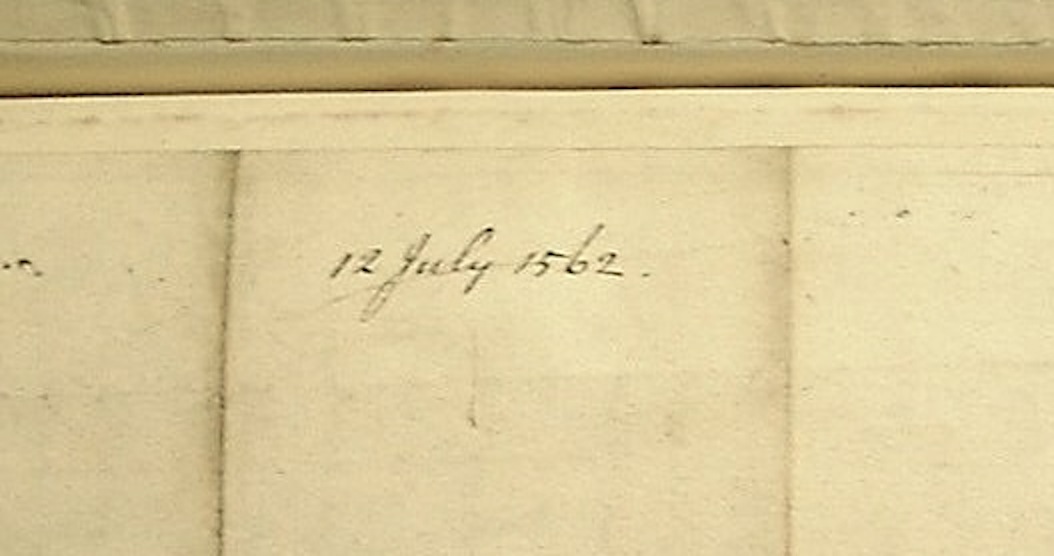 12 July 1562.